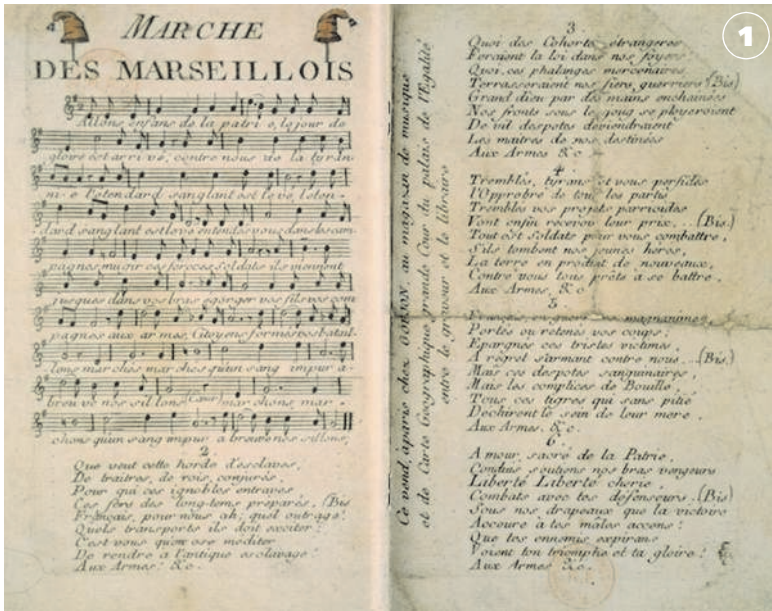 MARCHE
DES MARSEILLOIS
Allons enfans de la patri e, le jour de
gloire est arri vé, contre nous de la tyran
ni-e l'etendard sanglant est levé, l'eten-
dard sanglant est levé entendez vous dans les cam
pagnes mugir ces feroces soldats ils viennent
jusques dans vos bras egorger vos fils vos com
pagnes aux ar mes, Citoyens formés vos batail-
lons marchés marchés qu'un sang impur a-
breu ve nos sil lons (Cœur) mar chons, mar-
chons qu'un sang impur a breuve nos sillons,
2.
Que veut cette horde d'esclaves,
De traitres, de rois, conjurés,
Pour qui ces ignobles entraves
Ces fers des long-tems préparés, (Bis
Français, pour nous ah, quel outrage!
Quels transports ils doit exciter!
C'est vous qu'on ose méditer
De rendre à l'antique esclavage!
Aux Armes! &c.
Ce vend, à paris chez GOUJON, au magasin de musique
et de Carte Géographique grande Cour du palais de l'Egalité
entre le graveur et le libraire
3
Quoi des Cohorte étrangeres
Feraient la loi dans nos foyers
Quoi, ces phalanges mercenaires
Terrasseraient nos fiers guerriers! (Bis)
Grand dieu par des mains enchainées
Nos fronts sous le joug se ployeroient
De vil despotes deviendraient
Les maitres de nos destinées
Aux Armes &c
4
Tremblés, tyrans et vous perfides
l'Opprobre de tous les partis
Tremblés vos projets parricides
Vont enfin recevoir leur prix, ... (Bis.)
Tout est Soldats pour vous combattre,
S'ils tombent nos jeunes héros,
La terre en produit de nouveaux,
Contre vous tous prêts à se battre,
Aux Armes, &c
5
Français, en guerriers magnanimes,
Portés ou retenés vos coups;
Epargnés ces tristes victimes,
A regret s'armant contre nous ... (Bis.)
Mais ces despotes sanguinaires,
Mais les complices de Bouillé,
Tous ces tigres qui sans pitié
Déchirent le sein de leur mere.
Aux Armes. &c.
6.
Amour, sacré de la Patrie,
Conduis soutiens nos bras vengeurs
Liberté Liberté cherie,
Combats avec tes défenseurs. (Bis)
Sous nos drapeaux que la victoire
Accoure à tes mâles accens:
Que tes ennemis expirans
Voient ton triomphe et ta gloire!
Aux Armes &c.
1